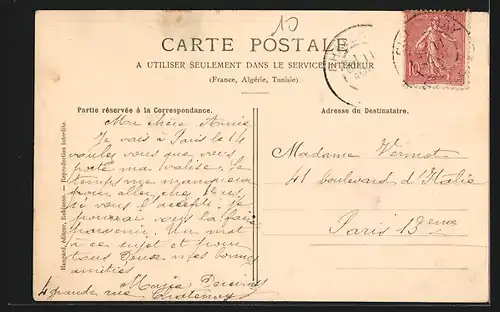 10
CARTE POSTALE
A UTILISER SEULEMENT DANS LE SERVICE INTÉRIEUR
(France, Algérie, Tunisie)
Partie réservée à la Correspondance.
Adresse du Destinataire.
Ma chère Annie
Je vais à Paris le 14
voulez vous que vous
porte ma valise, le
temps me manquera
pour aller chez
si vous l'accepté. Je
pourrai vous la faire
parvenir. Un mot
à ce sujet et pour
tous Deux mes bonnes
amitiés
Maria
4 grande rue Chatenay
Madame Vermot
41 boulevard d'Italie
Paris 13eme
10